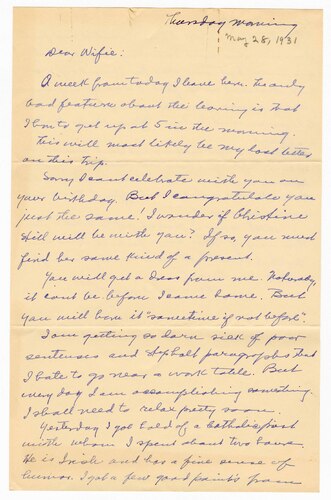 Thursday Morning
May 28, 1931
Dear Wifie:
A week from today I leave here. The only
bad feature about the leaving is that
I have to get up at 5 in the morning.
This will most likely be my last letter
on this trip.
Sorry I cant celebrate with you on
your birthday. But I congratulate you
just the same. I wonder if Christine
still will be with you? If so, you must
find her some kind of a present.
You will get a dress from me. Naturally,
it cant be before I come home. But
you will have it "sometime if not before".
I am getting so darn sick of poor
sentences and paragraphs that
I hate to go near a work table. But
every day I am accomplishing something.
I shall need to relax pretty soon.
Yesterday I got hold of a Catholic priest
with whom I spent about two hours.
He is Irish and has a fine sense of
humor. I got a few good points from